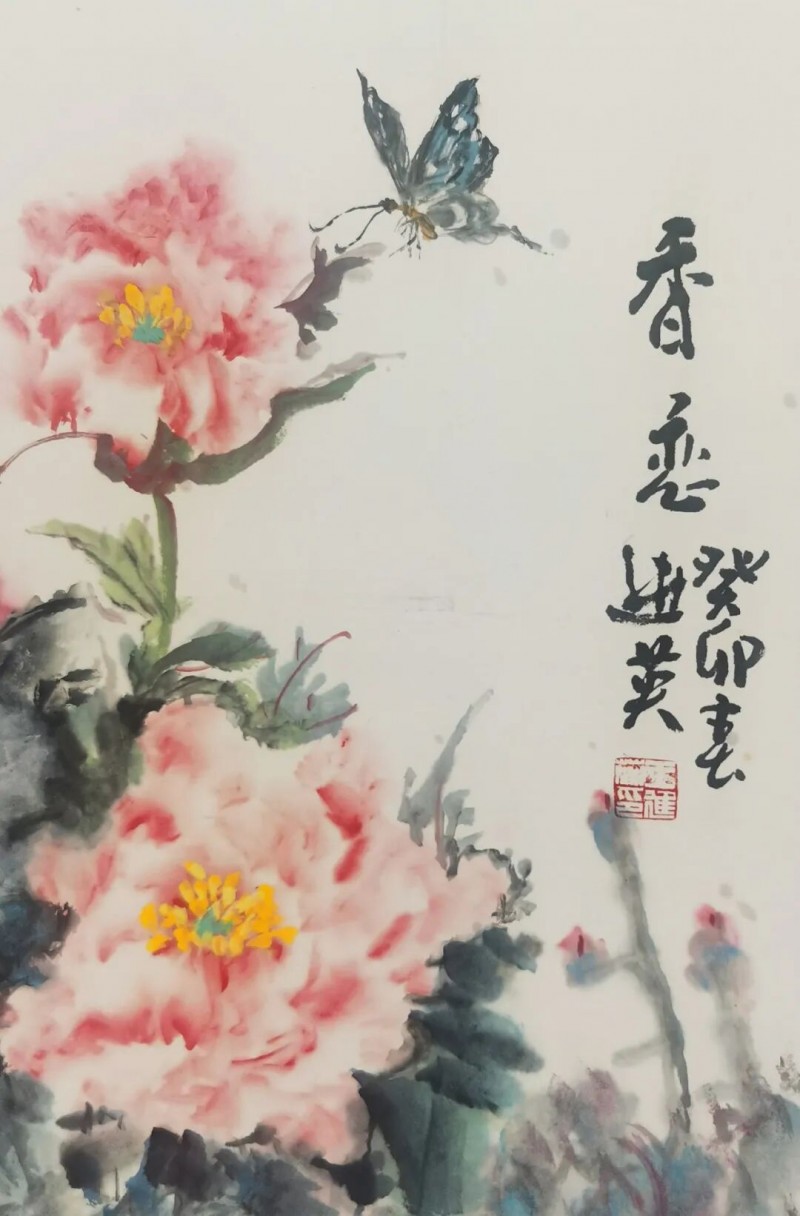 香恋
癸卯春
英